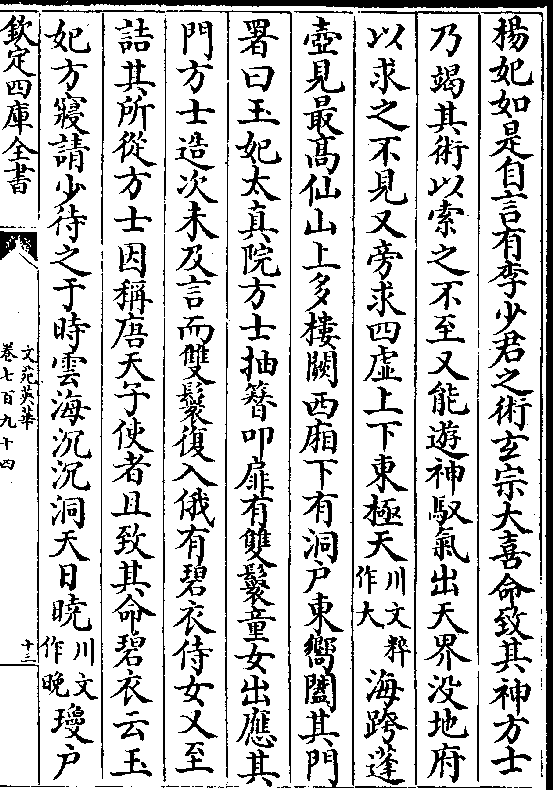 楊妃如是自言有李少君之術玄宗大喜命致其神方士
乃竭其術以索之不至又能遊神馭氣出天界没地府
以求之不見又旁求四虚上下東極天川文粹作大海跨蓬
壺見最髙仙山上多樓闕西廂下有洞户東嚮闔其門
署曰玉妃太真院方士抽簪叩扉有雙鬟童女出應其
門方士造次未及言而雙鬟復入俄有碧衣侍女又至
詰其所從方士因稱唐天子使者且致其命碧衣云玉
妃方寢請少待之于時雲海沉沉洞天日曉川文作晚瓊户
欽定四庫全書
文苑英華
卷七百九十四
十三